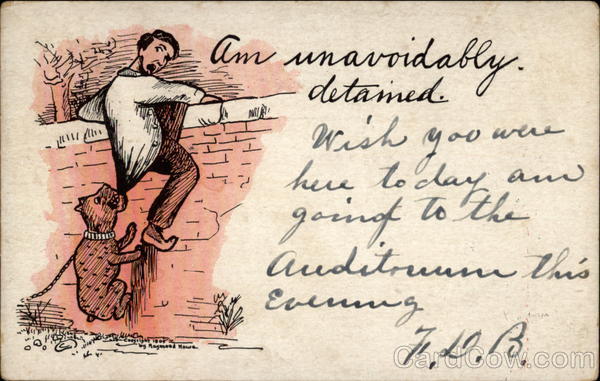 Am unavoidably.
detained.
Wish you were
here today am
going to the
Auditorium this
Evening
F. D. B.
Copyright 1905
by Raymond Howe
CardCow.com